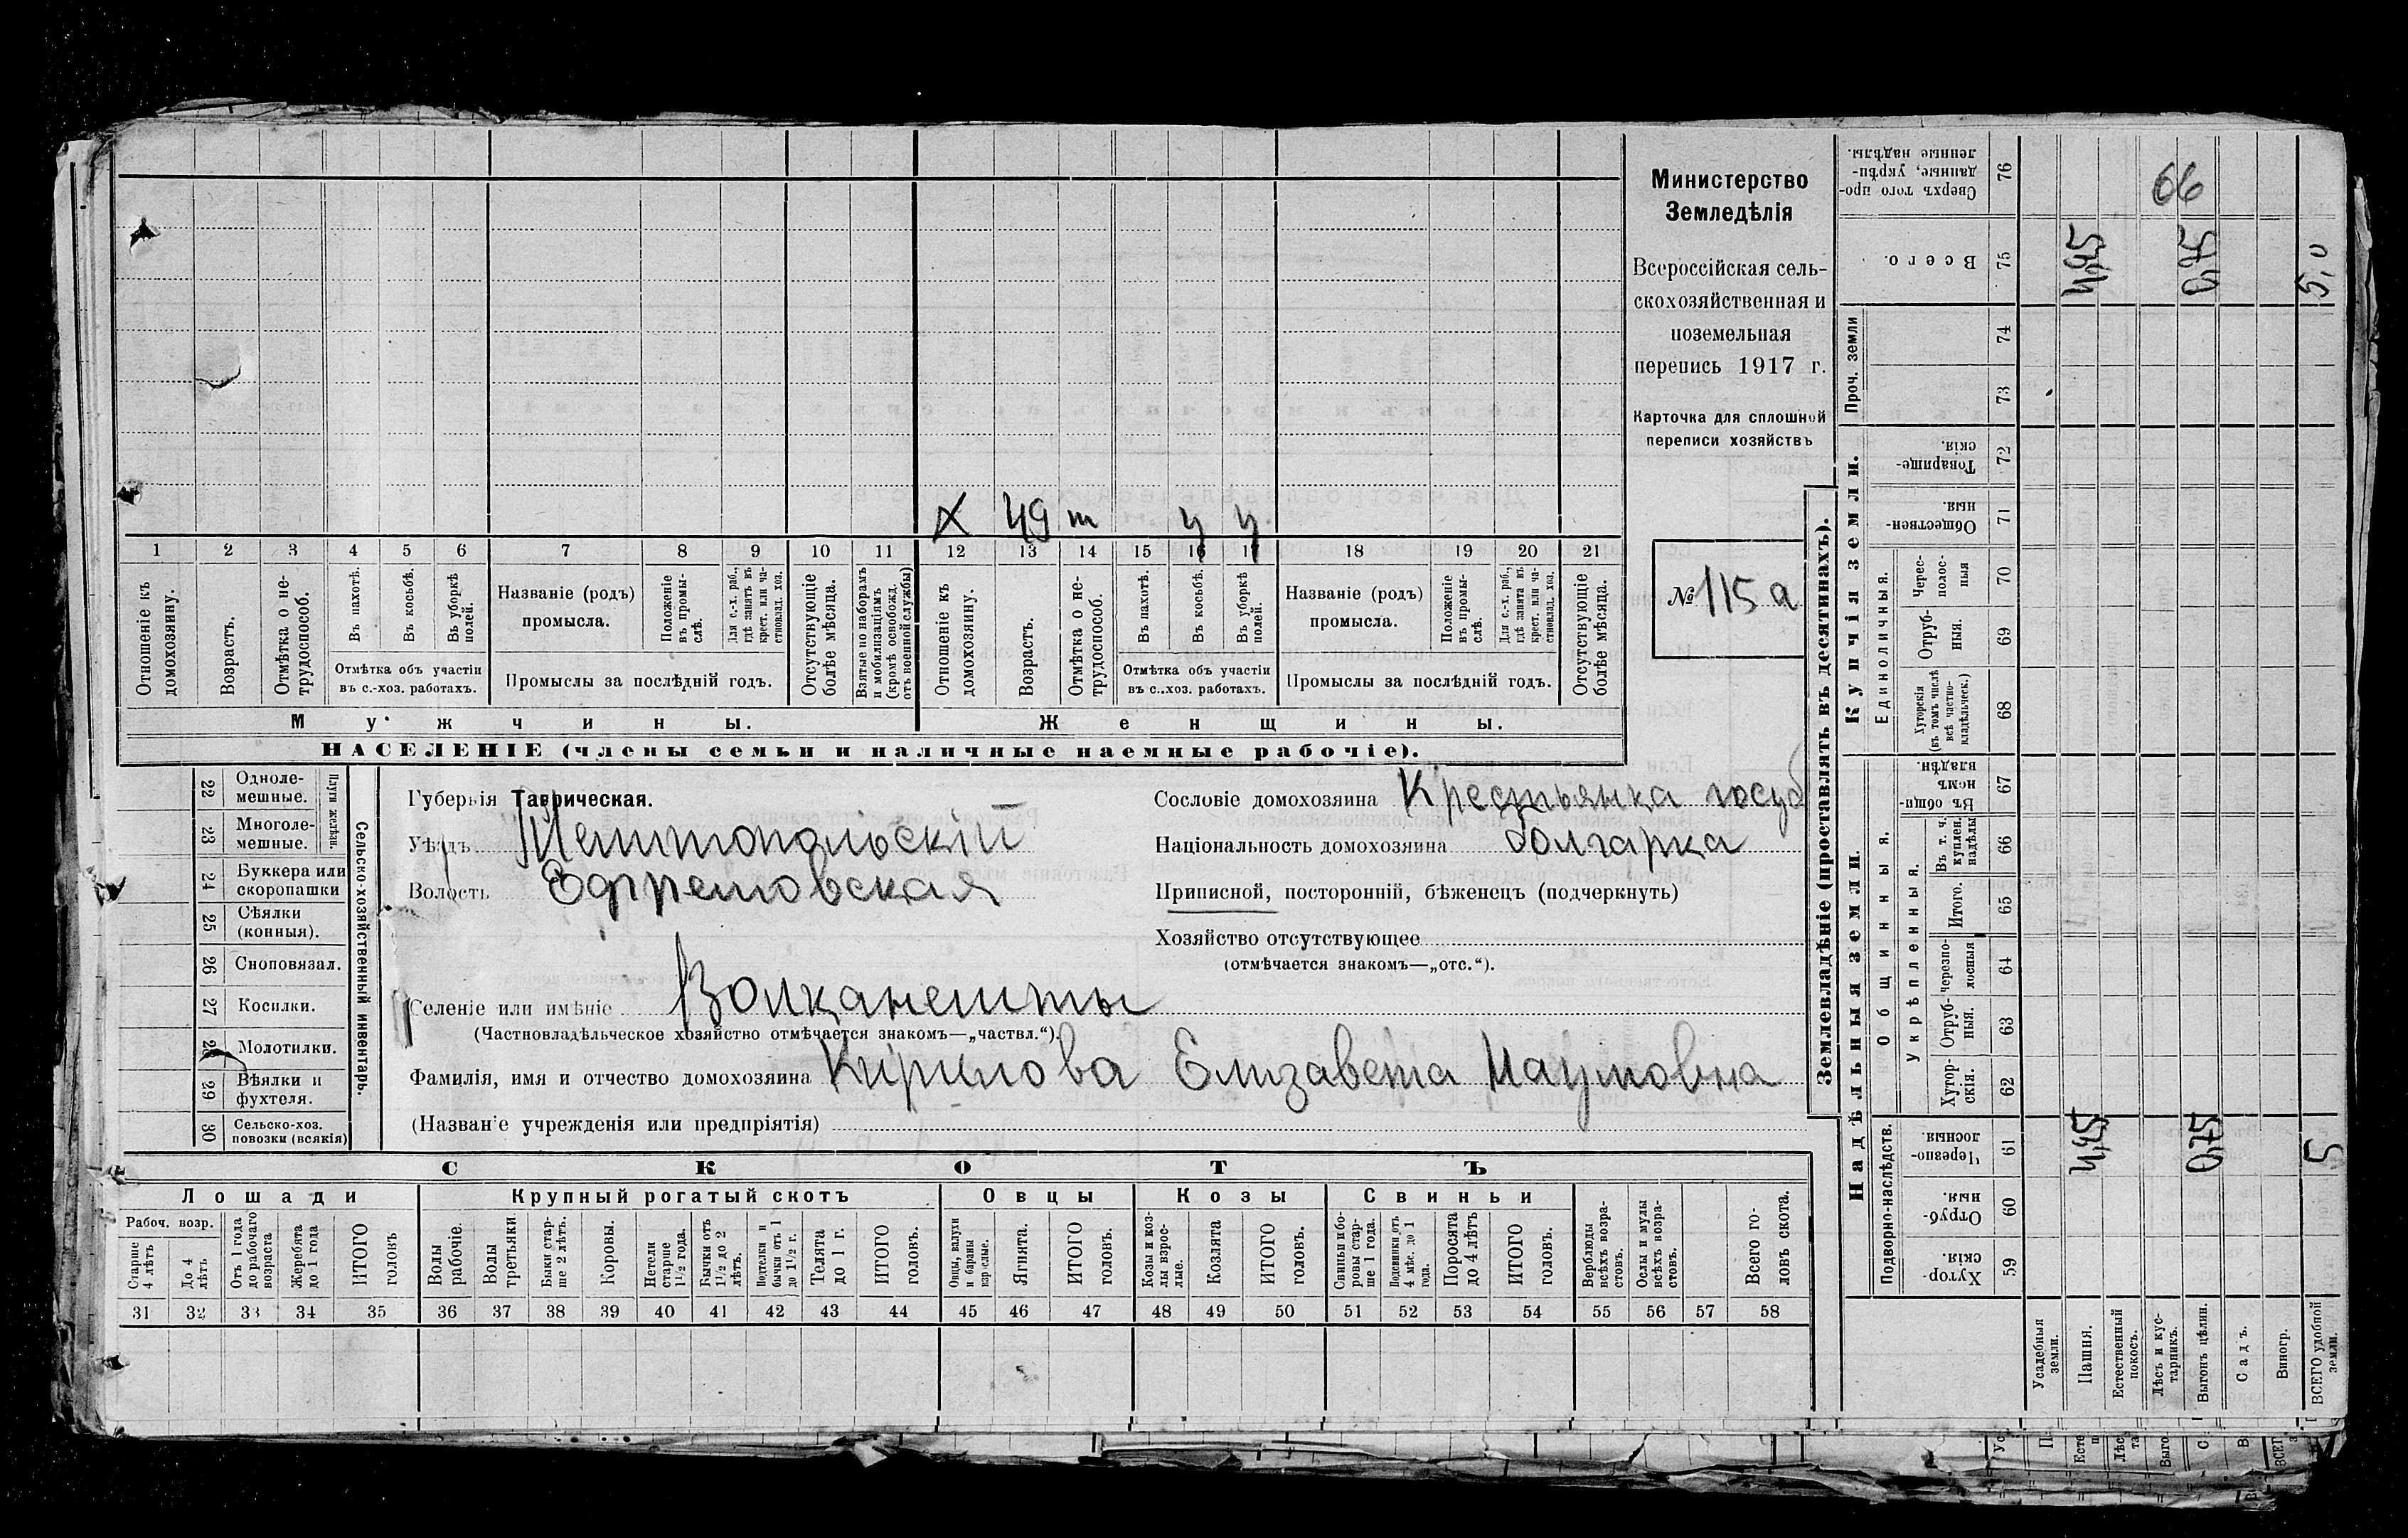 Министерство
Земледѣлія
Всероссійская сель-
скохозяйственная и
поземельная
перепись 1917 г.
Карточка для сплошной
переписи хозяйствъ
№ 115 а
X 49 т у у
1 2 3 4 5 6 7 8 9 10 11 12 13 14 15 16 17 18 19 20 21
Отношеніе къ домохозяину.
Возрастъ.
Отмѣтка о не-трудоспособ.
Въ пахотѣ.
Въ косьбѣ.
Въ уборкѣ полей.
Отмѣтка объ участіи
въ с.-хоз. работахъ.
Названіе (родъ)
промысла.
Положеніе въ промы-слѣ.
Для с.-х. раб., гдѣ занятъ въ крест. или ча-стновлад. хоз.
Промыслы за послѣдній годъ.
Отсутствующіе болѣе мѣсяца.
Взятые по наборамъ и мобилизаціямъ (кромѣ освобожд. отъ военной службы)
Отношеніе къ домохозяину.
Возрастъ.
Отмѣтка о не-трудоспособ.
Въ пахотѣ.
Въ косьбѣ.
Въ уборкѣ полей.
Отмѣтка объ участіи
въ с.-хоз. работахъ.
Названіе (родъ)
промысла.
Положеніе въ промы-слѣ.
Для с.-х. раб., гдѣ занята въ крест. или ча-стновлад. хоз.
Промыслы за послѣдній годъ.
Отсутствующіе болѣе мѣсяца.
Мужчины.
Женщины.
НАСЕЛЕНІЕ (члены семьи и наличные наемные рабочіе).
22 Одноле-мешные.
23 Многоле-мешные.
Плуги желѣзн.
24 Буккера или скоропашки
25 Сѣялки (конныя).
26 Сноповязал.
27 Косилки.
28 Молотилки.
29 Вѣялки и фухтеля.
30 Сельско-хоз. повозки (всякія)
Сельско-хозяйственный инвентарь.
Губернія Таврическая.
Уѣздъ Мелитопольскій
Волость Ефремовская
Селеніе или имѣніе Волканешты
(Частновладѣльческое хозяйство отмѣчается знакомъ—„частвл.“).
Фамилія, имя и отчество домохозяина Кирилова Елизавета Наумовна
(Названіе учрежденія или предпріятія)
Сословіе домохозяина Крестьянка госуд
Національность домохозяина болгарка
Приписной, посторонній, бѣженецъ (подчеркнуть)
Хозяйство отсутствующее
(отмѣчается знакомъ—„отс.“).
СКОТЪ
Лошади
Крупный рогатый скотъ
Овцы
Козы
Свиньи
Рабоч. возр.
Старше 4 лѣтъ
До 4 лѣтъ
Отъ 1 года до рабочаго возраста
Жеребята до 1 года
ИТОГО головъ
Волы рабочіе.
Волы третьяки
Быки стар-ше 2 лѣтъ.
Коровы.
Нетели старше 1½ года.
Бычки отъ 1½ до 2 лѣтъ.
Подтелки и бычки отъ 1 до 1½ г.
Телята до 1 г.
ИТОГО головъ.
Овцы, валухи и бараны взрослые.
Ягнята.
ИТОГО головъ.
Козы и коз-лы взрос-лые.
Козлята
ИТОГО головъ.
Свиньи и бо-ровы стар-ше 1 года.
Подсвинки отъ 4 мѣс. до 1 года.
Поросята до 4 лѣтъ
ИТОГО головъ.
Верблюды всѣхъ возра-стовъ.
Ослы и мулы всѣхъ возра-стовъ.
Всего го-ловъ скота.
31 32 33 34 35 36 37 38 39 40 41 42 43 44 45 46 47 48 49 50 51 52 53 54 55 56 57 58
Землевладѣніе (проставлять въ десятинахъ).
Купчія земли.
Надѣльныя земли.
Проч. земли
Единоличныя.
Общинныя.
Укрѣпленныя.
Подворно-наслѣдств.
Сверхъ того про-данные, укрѣп-ленные надѣлы. 76
66
Всего. 75 4,25 0,75 5,0
74
73
Товарище-скія. 72
Обществен-ныя. 71
Черес-полос-ныя 70
Отруб-ныя. 69
Хуторскія (въ томъ числѣ всѣ частно-владѣльческ.) 68
Въ общин-номъ владѣн. 67
Въ т. ч. куплен. надѣлы 66
Итого. 65
черезпо-лосныя 64
Отруб-ныя. 63
Хутор-скія. 62
Черезпо-лосныя. 61 4,25 0,75 5
Отруб-ныя. 60
Хутор-скія. 59
Усадебныя земли.
Пашня.
Естественный покосъ.
Лѣсъ и кус-тарникъ.
Выгонъ цѣлин.
Садъ.
Виногр.
ВСЕГО удобной земли.